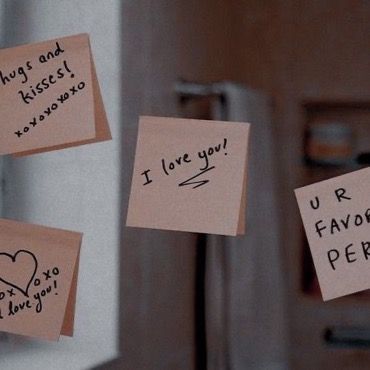 hugs and
kisses!
xoxoxoxoxo
I love you!
U R
FAVO
PER
xoxo
I love you!